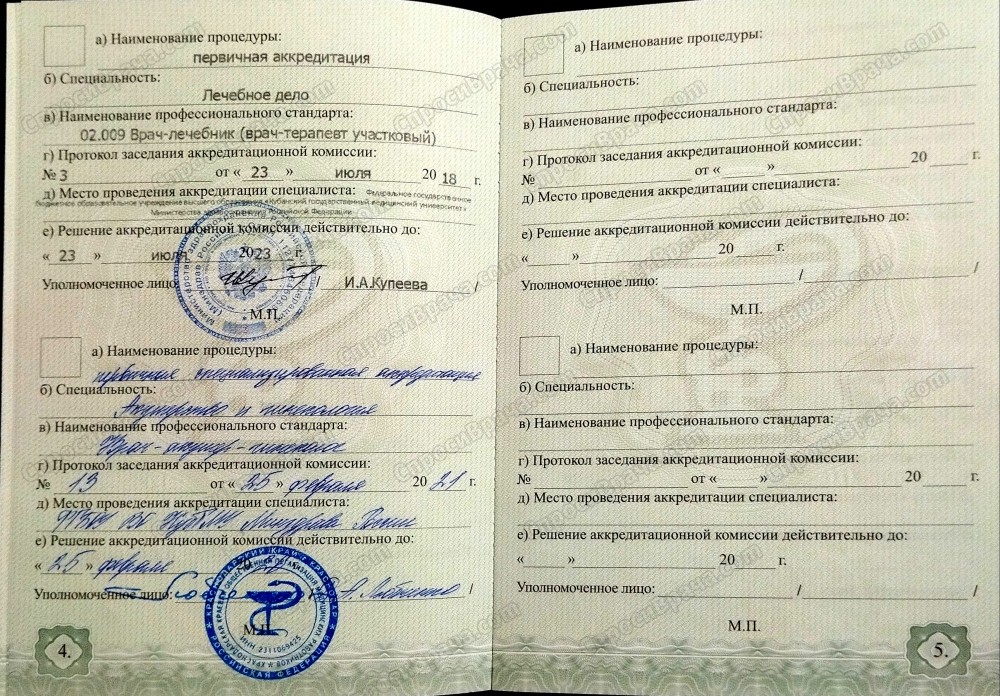 а) Наименование процедуры:
первичная аккредитация
б) Специальность:
Лечебное дело
в) Наименование профессионального стандарта:
02.009 Врач-лечебник (врач-терапевт участковый)
г) Протокол заседания аккредитационной комиссии:
№ 3 от « 23 » июля 20 18 г.
д) Место проведения аккредитации специалиста: Федеральное государственное
бюджетное образовательное учреждение высшего образования «Кубанский государственный медицинский университет»
Министерства здравоохранения Российской Федерации
е) Решение аккредитационной комиссии действительно до:
« 23 » июля 2023 г.
Уполномоченное лицо: / И.А.Купеева
М.П.
а) Наименование процедуры:
первичная специализированная аккредитация
б) Специальность:
Акушерство и гинекология
в) Наименование профессионального стандарта:
Врач-акушер-гинеколог
г) Протокол заседания аккредитационной комиссии:
№ 13 от « 25 » февраля 20 21 г.
д) Место проведения аккредитации специалиста:
ФГБОУ ВО КубГМУ Минздрава России
е) Решение аккредитационной комиссии действительно до:
« 25 » февраля 20
Уполномоченное лицо: /
М.П.
КРАСНОДАРСКИЙ КРАЙ
РОССИЙСКАЯ ФЕДЕРАЦИЯ
КРАСНОДАРСКАЯ КРАЕВАЯ ОБЩЕСТВЕННАЯ ОРГАНИЗАЦИЯ МЕДИЦИНСКИХ РАБОТНИКОВ
ИНН 2311069425
4.
а) Наименование процедуры:
б) Специальность:
в) Наименование профессионального стандарта:
г) Протокол заседания аккредитационной комиссии:
№ от « » 20 г.
д) Место проведения аккредитации специалиста:
е) Решение аккредитационной комиссии действительно до:
« » 20 г.
Уполномоченное лицо: / /
М.П.
а) Наименование процедуры:
б) Специальность:
в) Наименование профессионального стандарта:
г) Протокол заседания аккредитационной комиссии:
№ от « » 20 г.
д) Место проведения аккредитации специалиста:
е) Решение аккредитационной комиссии действительно до:
« » 20 г.
Уполномоченное лицо: / /
М.П.
5.
СпросиВрача.com